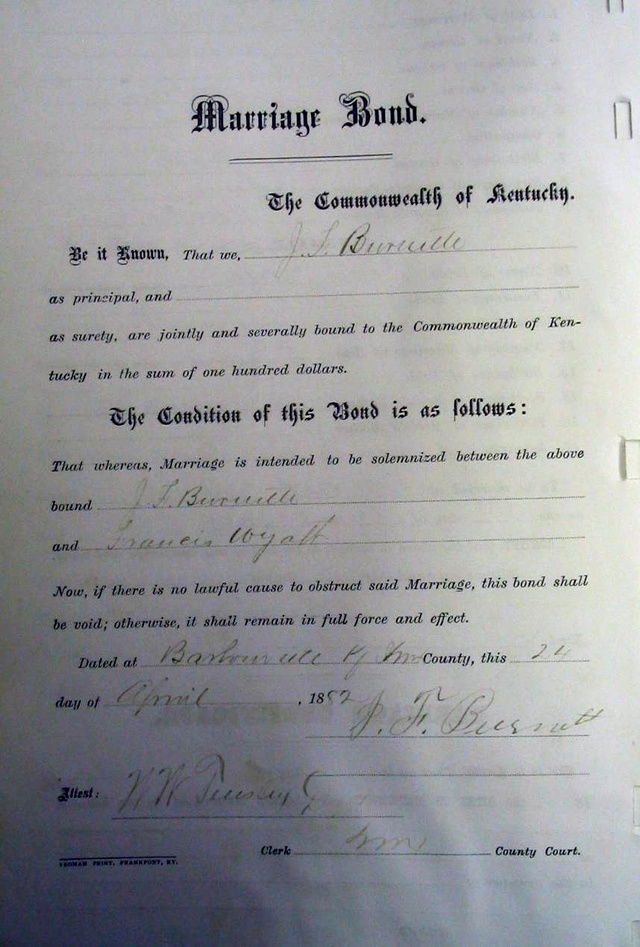 Marriage Bond.
The Commonwealth of Kentucky.
Be it Known, That we, J. F.
as principal, and
as surety, are jointly and severally bound to the Commonwealth of Ken-
tucky in the sum of one hundred dollars.
The Condition of this Bond is as follows:
That whereas, Marriage is intended to be solemnized between the above
bound J. F.
and Francis Wyatt
Now, if there is no lawful cause to obstruct said Marriage, this bond shall
be void; otherwise, it shall remain in full force and effect.
Dated at Barbourville Ky County, this
day of April, 1882
J. F.
Attest: W W
Clerk County Court.
YEOMAN PRINT, FRANKFORT, KY.